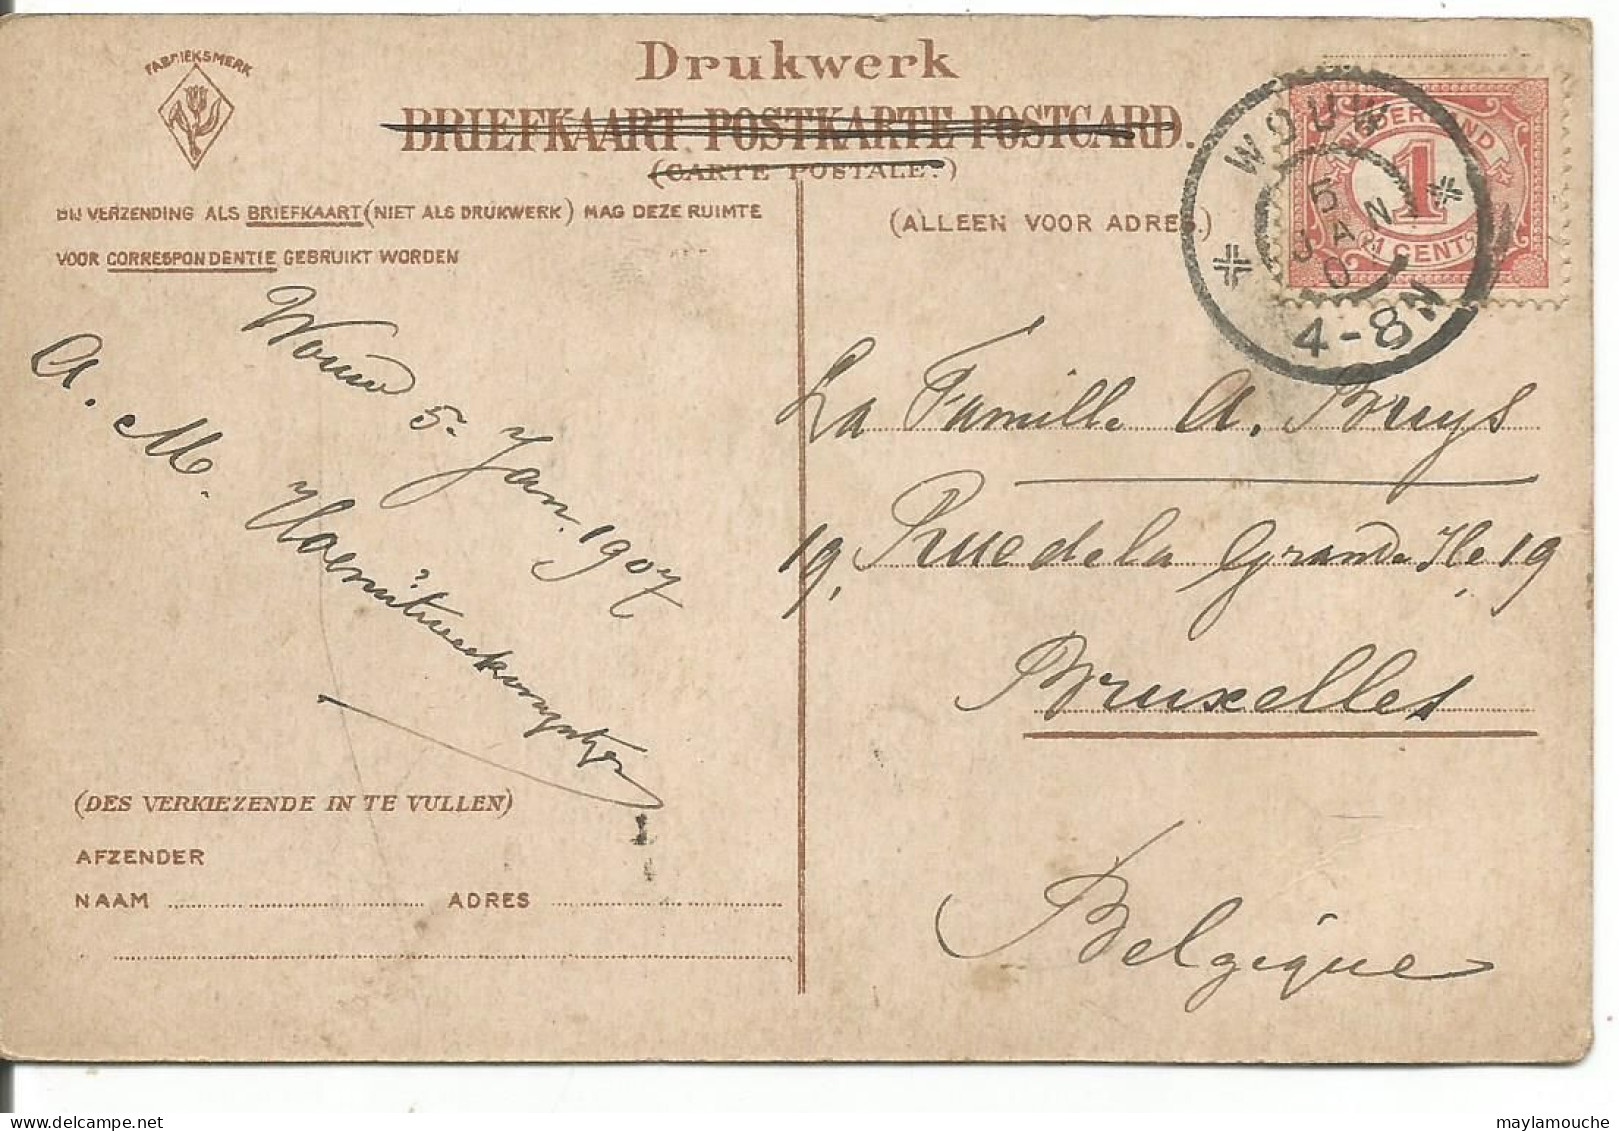 FABRIEKSMERK
Drukwerk
BRIEFKAART POSTKARTE POSTCARD.
(CARTE POSTALE.)
BIJ VERZENDING ALS BRIEFKAART (NIET ALS DRUKWERK) MAG DEZE RUIMTE
VOOR CORRESPONDENTIE GEBRUIKT WORDEN
(ALLEEN VOOR ADRES.)
WOUW
5 JAN 0
4-8 N
NEDERLAND
1
CENT
Wouw 5. Jan. 1907
A. M.
La Famille A. Bruys
19, Rue de la Grande Ile, 19
Bruxelles
Belgique
(DES VERKIEZENDE IN TE VULLEN)
AFZENDER
NAAM ADRES
maylamouche